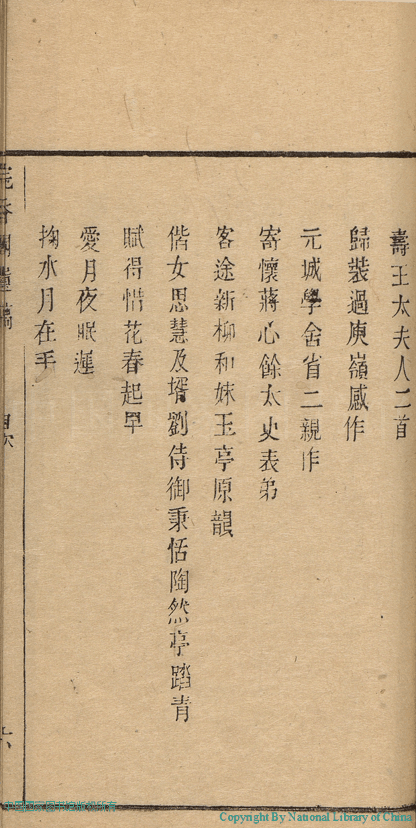 壽王太夫人二首
歸裝過庾嶺感作
元城學舍省二親作
寄懷蔣心餘太史表弟
客途新柳和妹玉亭原韻
偕女思慧及壻劉侍御秉恬陶然亭踏青
賦得惜花春起早
愛月夜眠遲
掬水月在手
目次
六
中国国家图书馆版权所有
Copyright By National Library of China